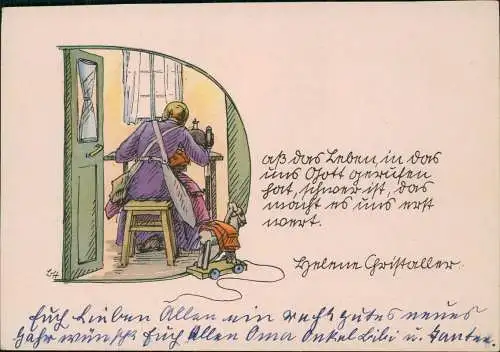 Daß das Leben, in das
uns Gott gerufen
hat, schwer ist, das
macht es uns erst
wert.
Helene Christaller.
Euch Lieben Allen ein recht gutes neues
Jahr wünscht Euch Allen Oma Onkel Bibi u. Tantee.